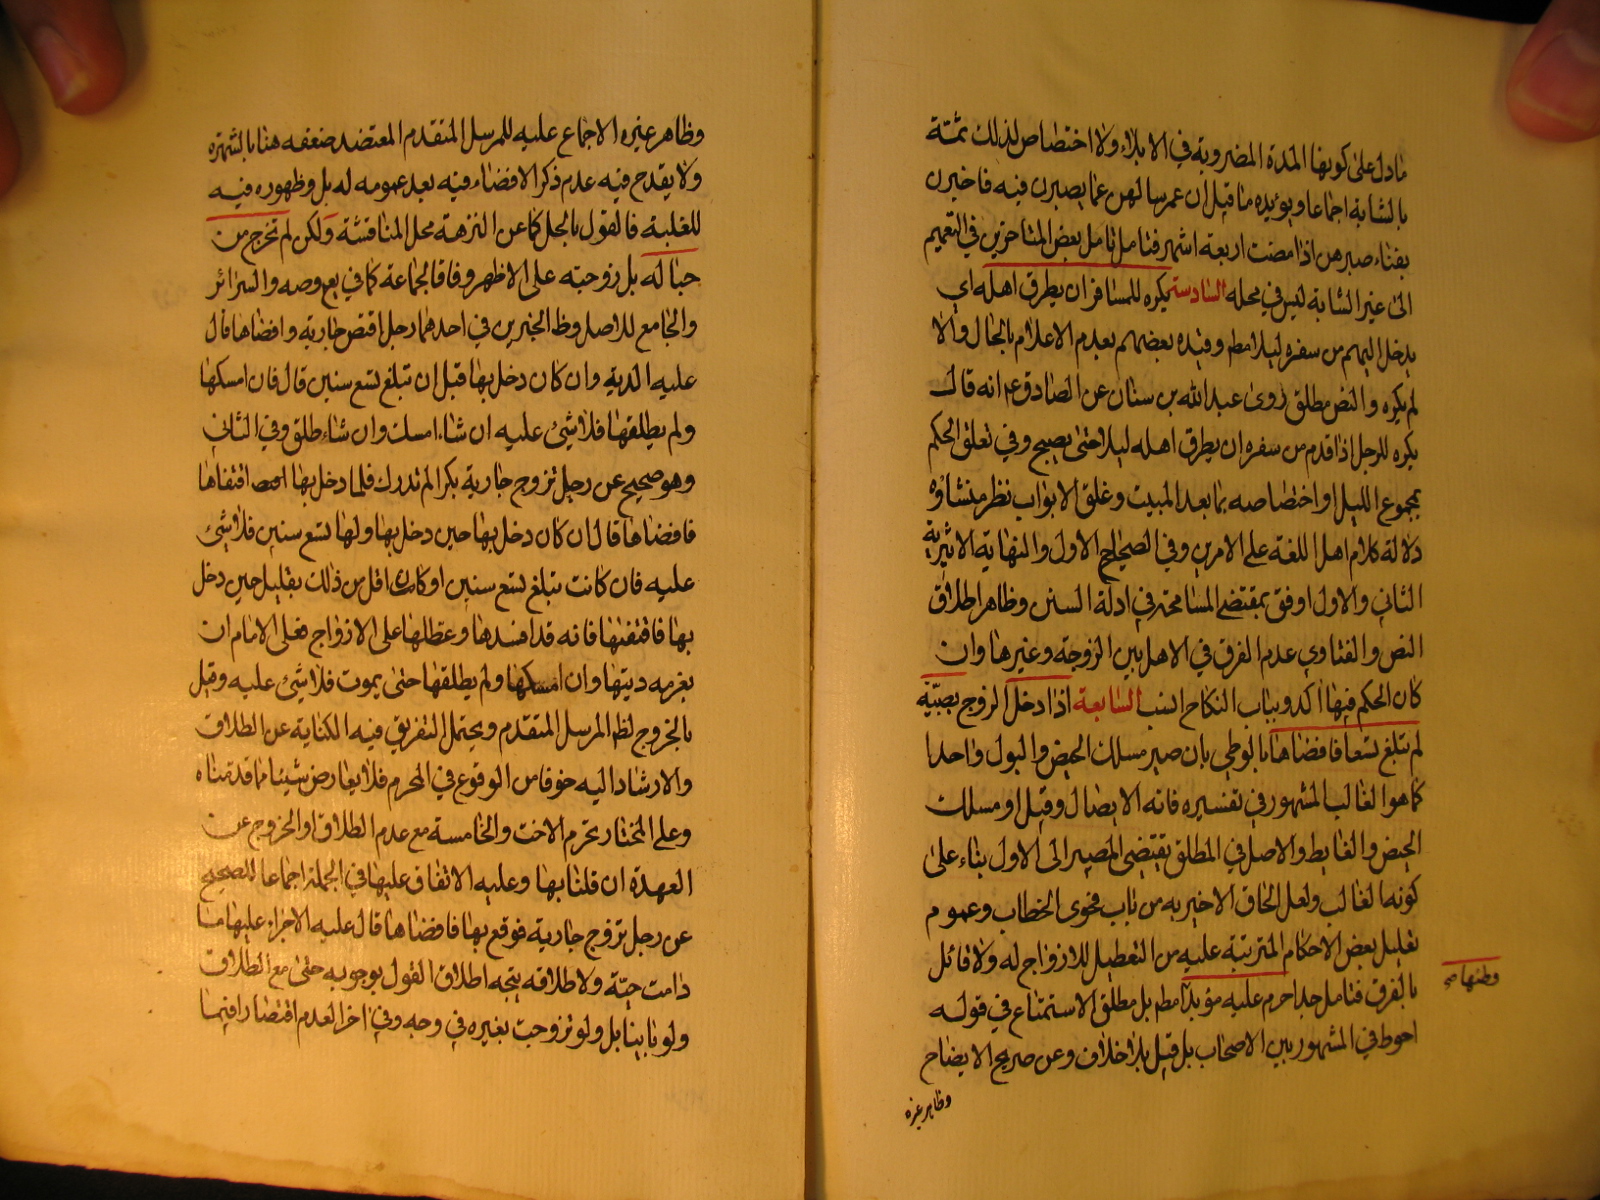 ما دل على كونها المدة المضروبة في الايلاء ولا اختصاص لذلك ثمّة
بالشابة اجماعا ويؤيده ما قيل ان عمر سالهن عما يصبرن فيه فاخبرن
بفناء صبرهن اذا مضت اربعة اشهر فتامل تامل بعض المتاخرين في التعميم
الى غير الشابة ليس في محله السادسة يكره للمسافر ان يطرق اهله اي
يدخل اليهم من سفره ليلا مطه وقيده بعضهم بعدم الاعلام بالحال والا
لم يكره والنص مطلق روى عبد الله بن سنان عن الصادق ع انه قال
يكره للرجل اذا قدم من سفره ان يطرق اهله ليلا حتى يصبح وفي تعلق الحكم
بمجموع الليل او اختصاصه بما بعد المبيت وغلق الابواب نظر منشاؤه
دلالة كلام اهل اللغة على الامرين وفي الصحاح الاول والنهاية الاثيرية
الثاني والاول اوفق بمقتضى المسامحة في ادلة السنن وظاهر اطلاق
النص والفتاوي عدم الفرق في الاهل بين الزوجة وغيرها وان
كان الحكم فيها اكد وبباب النكاح انسب السابعة اذا دخل الزوج بصبيّة
لم تبلغ تسعا فافضاها بالوطي بان صير مسلك الحيض والبول واحدا
كما هو الغالب المشهور في تفسيره فانه الايصال وقيل او مسلك
الحيض والغايط والاصل في المطلق يقتضي المصير الى الاول بناء على
كونه الغالب ولعل الحاق الاخير به من باب فحوى الخطاب وعموم
تعليل بعض الاحكام المترتبة عليه من التعطيل للازواج له ولا قائل
بالفرق فتامل جدا حرم عليه مؤبدا مطه بل مطلق الاستمتاع في قوله
وطئها صح
احوط في المشهور بين الاصحاب بل قيل بلا خلاف وعن صريح الايضاح
وظاهر غيره
وظاهر غيره الاجماع عليه للمرسل المتقدم المعتضد ضعفه هنا بالشهرة
ولا يقدح فيه عدم ذكر الافضاء فيه بعد عمومه له بل وظهوره فيه
للغلبة فالقول بالحل كما عن النزهة محل المناقشة ولكن لم تخرج من
حباله بل زوجيته على الاظهر وفاقا لجماعة كما في يع وصه والسرائر
والجامع للاصل وظ الخبرين في احدهما رجل اقتض جارية وافضاها قال
عليه الدية وان كان دخل بها قبل ان تبلغ تسع سنين قال فان امسكها
ولم يطلقها فلا شيئ عليه ان شاء امسك وان شاء طلق وفي الثاني
وهو صحيح عن رجل تزوج جارية بكرا لم تدرك فلما دخل بها اقتضاها
فافضاها قال ان كان دخل بها حين دخل بها ولها تسع سنين فلا شيئ
عليه فان كانت تبلغ تسع سنين او كان اقل من ذلك بقليل حين دخل
بها فاقتضها فانه قد افسدها وعطلها على الازواج فعلى الامام ان
يغرمه ديتها وان امسكها ولم يطلقها حتى يموت فلا شيئ عليه وقيل
بالخروج لظ المرسل المتقدم ويحتمل التفريق فيه الكناية عن الطلاق
والارشاد اليه خوفا من الوقوع في المحرم فلا يعارض شيئا مما قدمناه
وعلى المختار تحرم الاخت والخامسة مع عدم الطلاق او الخروج عن
العهدة ان قلنا بها وعليه الانفاق عليها في الجملة اجماعا للصحيح
عن رجل تزوج جارية فوقع بها فافضاها قال عليه الاجراء عليها ما
دامت حيّة ولاطلاقه يتجه اطلاق القول بوجوبه حتى مع الطلاق
ولو باينا بل ولو تزوجت بغيره في وجه وفي اخر العدم اقتصارا فيما